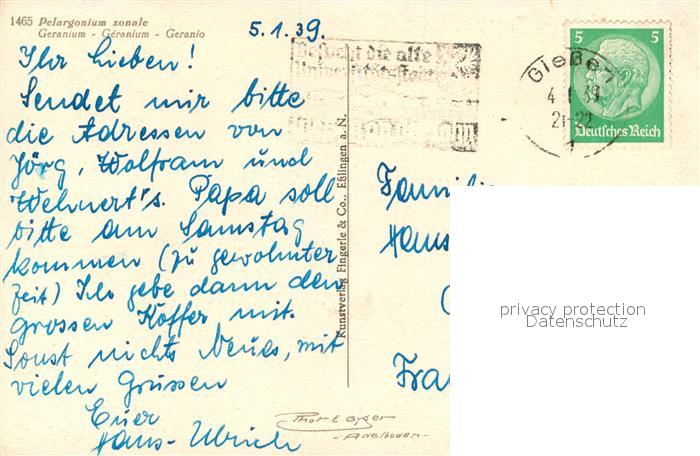 1465 Pelargonium zonale
Geranium - Géranium - Geranio
5.1.39.
Ihr Lieben!
Sendet mir bitte
die Adressen von
Jörg, Wolfram und
Wehnert's. Papa soll
bitte am Samstag
kommen (zu gewohnter
Zeit) Ich gebe dann den
grossen Koffer mit.
Sonst nichts Neues, mit
vielen Grüssen
Euer
Hans-Ulrich
Kunstverlag Fingerle & Co., Eßlingen a. N.
Besucht die alte
Universitätsstadt
Gießen
4.1.39
21-22
5 5
Deutsches Reich
Familie
Hans
Fra
Adelboden
privacy protection
Datenschutz